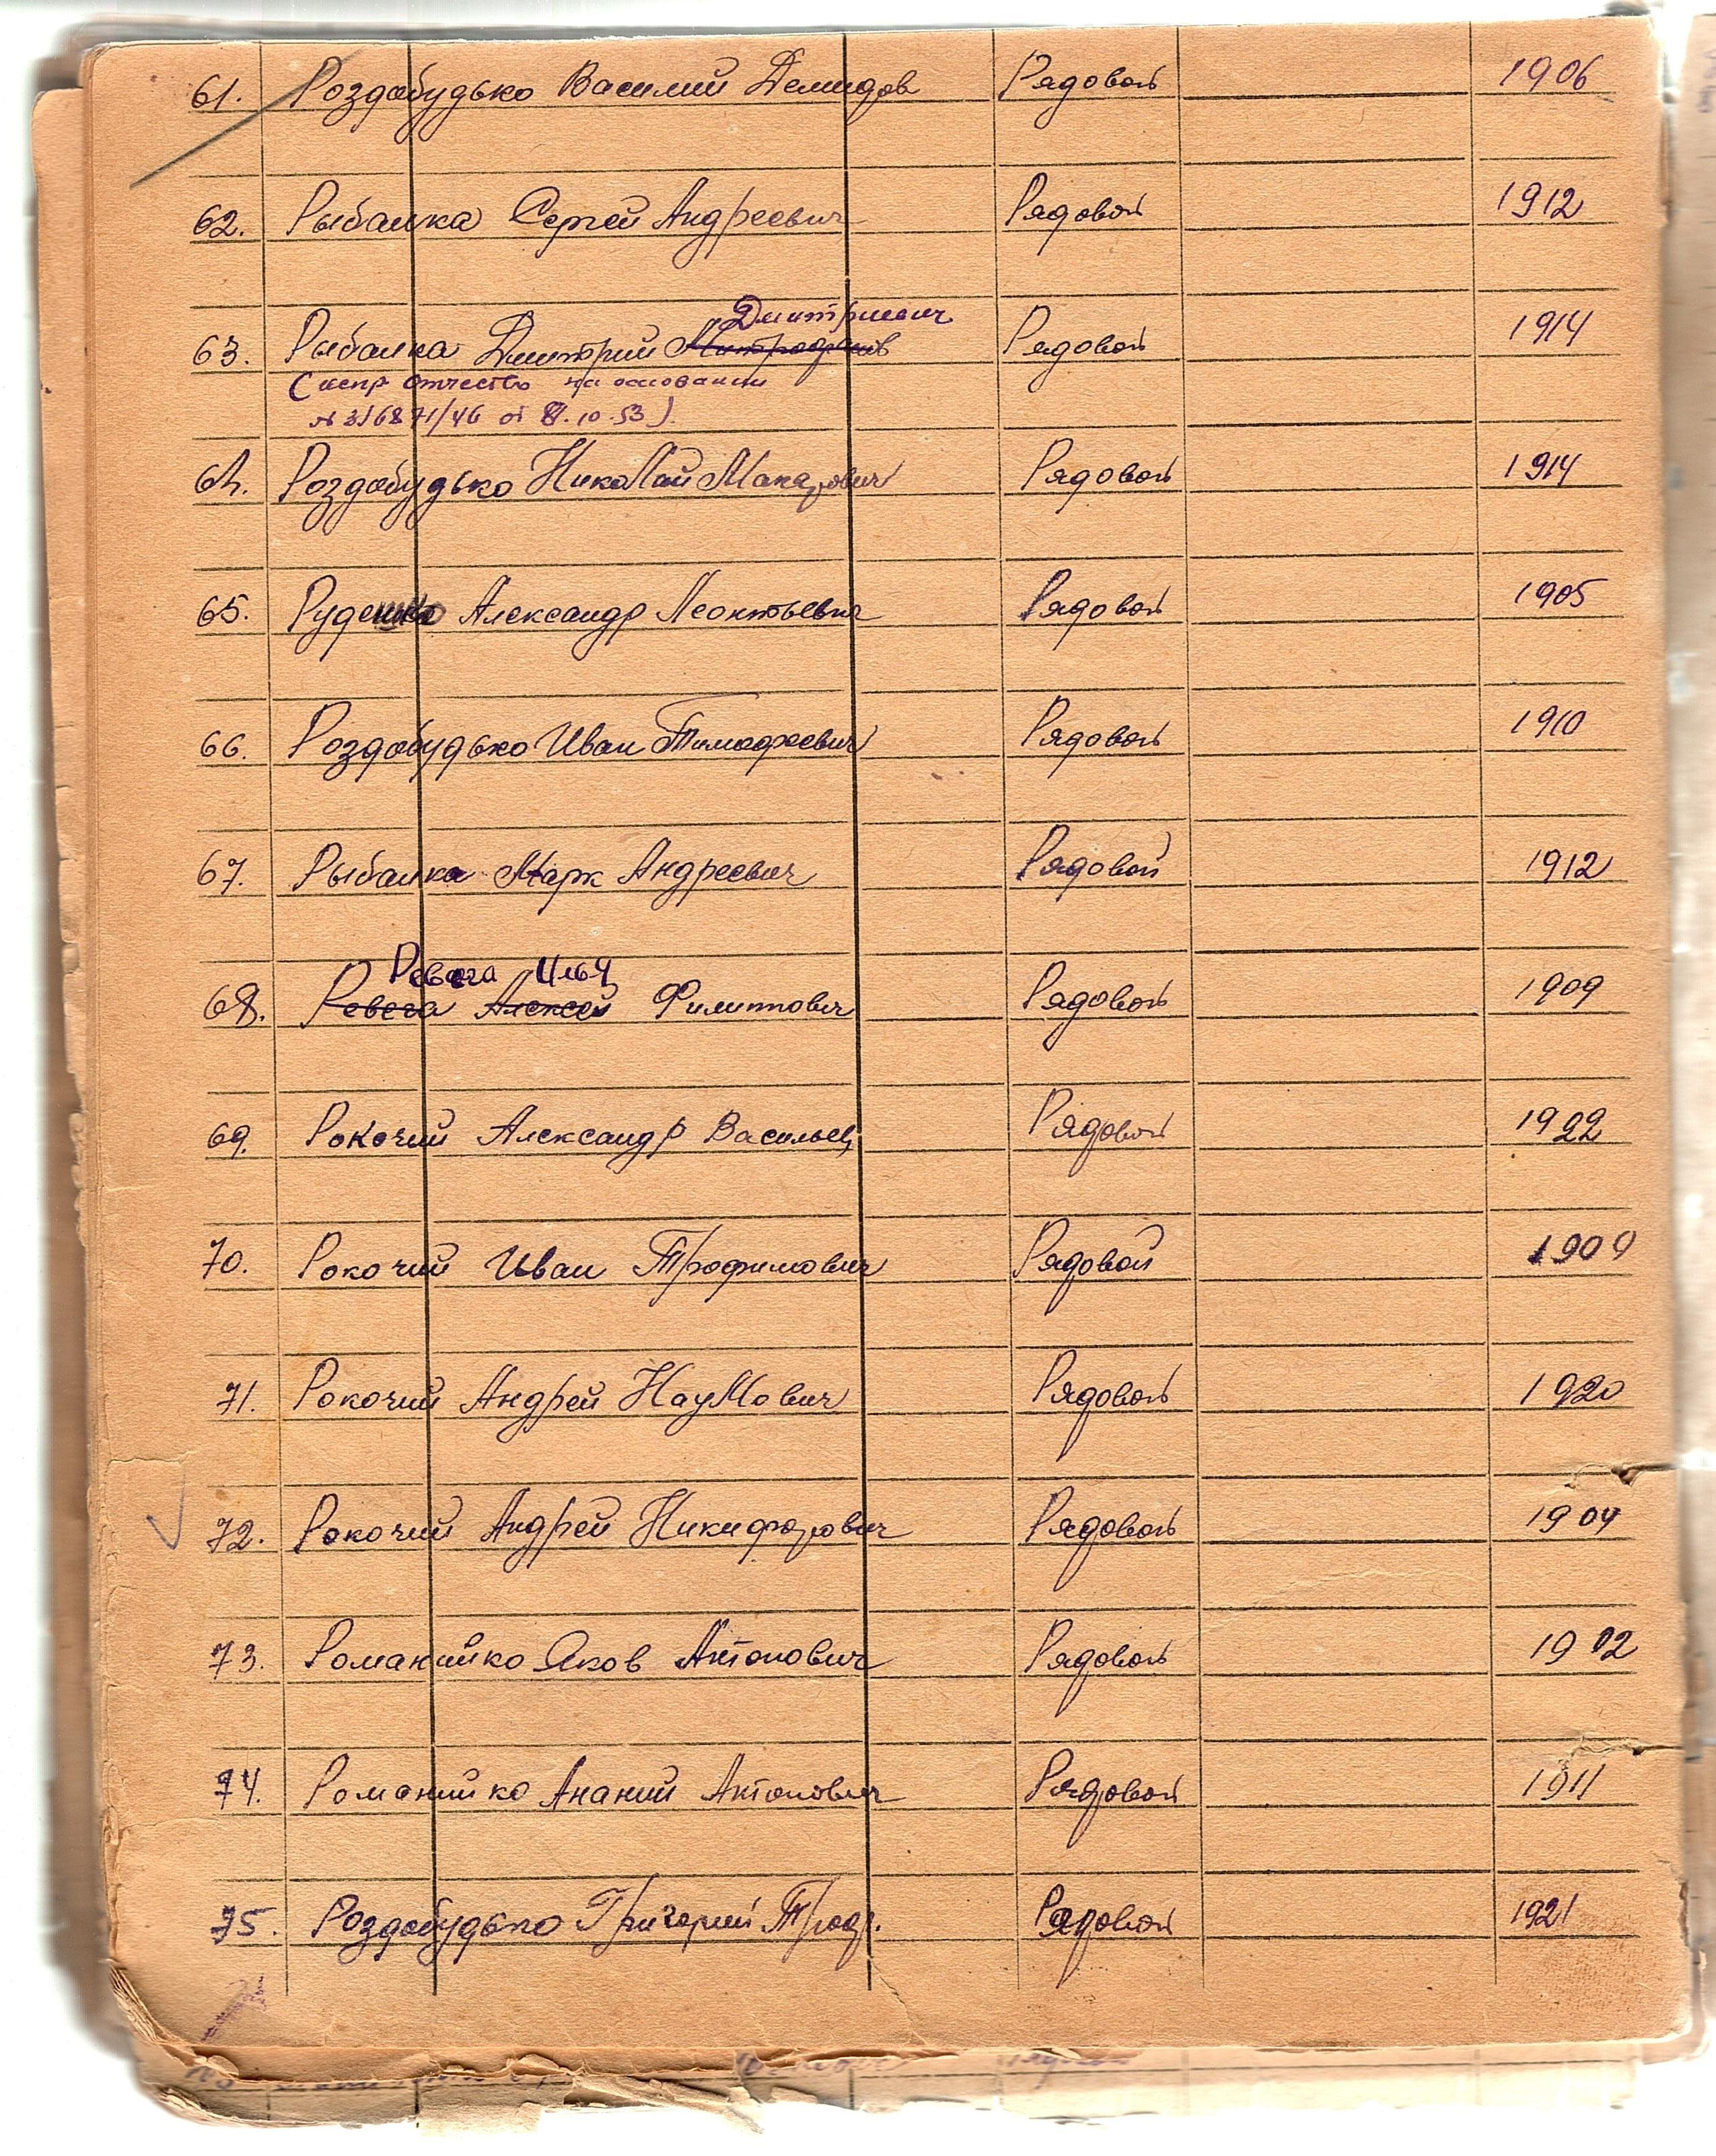 61. Роздобудько Василий Демидов Рядовой 1906
62. Рыбалка Сергей Андреевич Рядовой 1912
Дмитриевич
63. Рыбалка Дмитрий Митрофанов Рядовой 1914
(испр отчество на основании
№ 316871/46 от 8.10.53)
64. Роздобудько Николай Макарович Рядовой 1914
65. Руденко Александр Леонтьевич Рядовой 1905
66. Роздобудько Иван Тимофеевич Рядовой 1910
67. Рыбалка Марк Андреевич Рядовой 1912
Ревега Илья
68. Ревега Алексей Филиппович Рядовой 1909
69. Рокочий Александр Васильев Рядовой 1922
70. Рокочий Иван Трофимович Рядовой 1909
71. Рокочий Андрей Наумович Рядовой 1920
72. Рокочий Андрей Никифорович Рядовой 1904
73. Романийко Яков Антонович Рядовой 1912
74. Романийко Ананий Антонович Рядовой 1911
75. Роздобудько Григорий Троф. Рядовой 1921